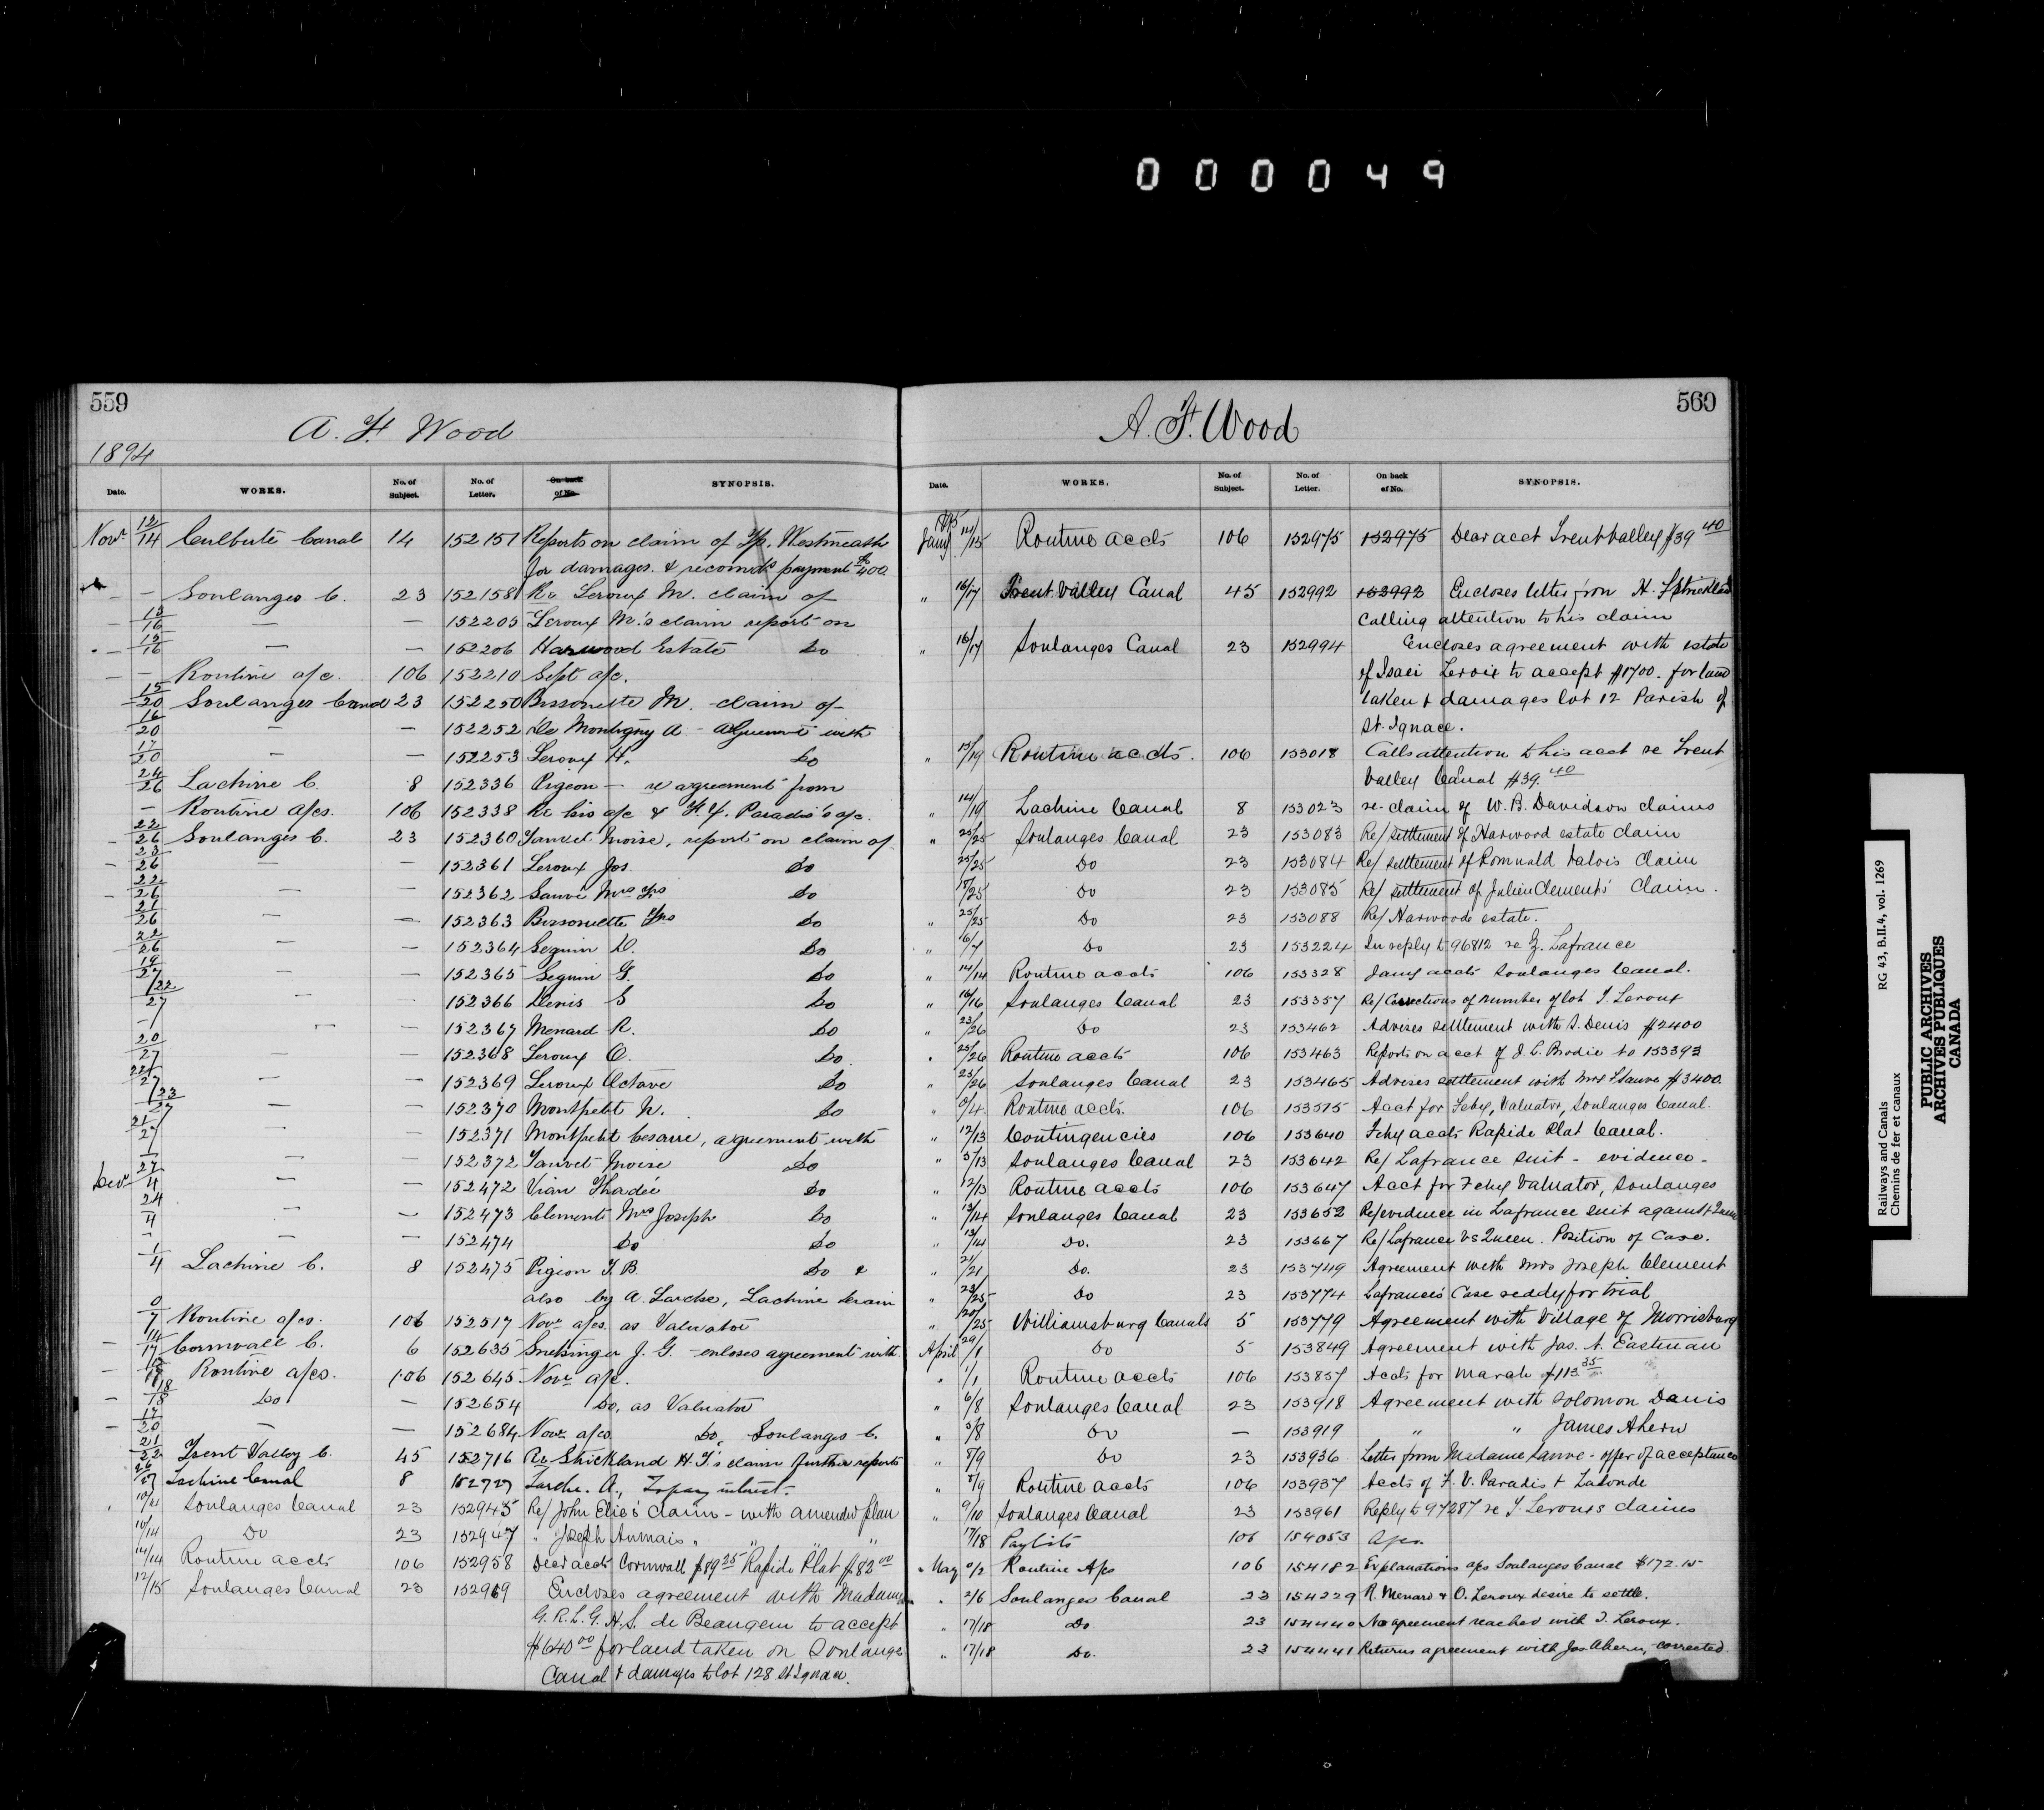 0 0 0 0 4 9
559
A. F. Wood
1894
Date. WORKS. No. of Subject. No. of Letter. On back of No. SYNOPSIS.
Novr 12/14 Culbute Canal 14 152151 Reports on claim of Tp. Westmeath
for damages & recomds payment $400
— Soulanges C. 23 152158 Re Leroux M. claim of
15/16 — — 152205 Leroux M.'s claim report on
15/16 — — 152206 Harwood Estate Do
— Routine a/c. 106 152210 Sept a/c.
15/20 Soulanges Canal 23 152250 Bissonette M. - claim of
16/20 — — 152252 De Montigny A - Agreement with
17/20 — — 152253 Leroux H. Do
24/26 Lachine C. 8 152336 Pigeon — re agreement from
— Routine a/cs. 106 152338 Re his a/c & F. V. Paradis's a/c.
22/26 Soulanges C. 23 152360 Sauvet Moise, report on claim of
23/26 — — 152361 Leroux Jos. Do
22/26 — — 152362 Sauvé Mrs Do
21/26 — — 152363 Bissonette Do
22/26 — — 152364 Seguin D. Do
19/27 — — 152365 Seguin G. Do
22/27 — — 152366 Denis S Do
— — 152367 Menard R. Do
20/27 — — 152368 Leroux O. Do
22/27 — — 152369 Leroux Octave Do
23/27 — — 152370 Montpetit N. Do
21/27 — — 152371 Montpetit Cesarre, agreement with
1/27 — — 152372 Sauvet Moise Do
Decr 4 — — 152472 Vian Thadée Do
24/4 — — 152473 Clement Mrs Joseph Do
— — — 152474 Do Do
1/4 Lachine C. 8 152475 Pigeon T. B. Do &
also by A. Larche, Lachine drain
0/7 Routine a/cs. 106 152517 Novr a/cs. as Valuator
14/17 Cornwall C. 6 152635 Snetsinger J. G. - encloses agreement with
Routine a/cs. 106 152645 Novr a/c.
18/18 Do — 152654 Do, as Valuator
17/20 — — 152684 Novr a/cs Do, Soulanges C.
21/22 Trent Valley C. 45 152716 Re Strickland H. T.'s claim further reports
26/27 Lachine Canal 8 152727 Larche. A., To pay interest.
10/11 Soulanges Canal 23 152945 Re/ John Elie's claim - with amended plan
10/14 Do 23 152947 " Joseph Aumais " " "
14/14 Routine accts 106 152958 Decr accts Cornwall $89.25 Rapide Plat $82.00
12/15 Soulanges Canal 23 152969 Encloses agreement with Madame
G. R. L. G. H. S. de Beaugeu to accept
$640.00 for land taken on Soulanges
Canal & damages to lot 128 St Ignace.
560
A. F. Wood
Date. WORKS. No. of Subject. No. of Letter. On back of No. SYNOPSIS.
1895
Jany 14/15 Routine accts 106 152975 152975 Decr acct Trent Valley $39.40
" 16/17 Trent Valley Canal 45 152992 152992 Encloses letter from H. T Strickland
Calling attention to his claim
" 16/17 Soulanges Canal 23 152994 Encloses agreement with estate
of Isaei Leroix to accept $1700. for land
taken & damages lot 12 Parish of
St. Ignace.
" 15/19 Routine accts. 106 153018 Calls attention to his acct re Trent
Valley Canal $39.40
" 14/19 Lachine Canal 8 153023 re- claim of W. B. Davidson claims
" 25/25 Soulanges Canal 23 153083 Re/ settlement of Harwood estate claim
25/25 Do 23 153084 Re/ settlement of Romuald Valois claim
18/25 Do 23 153085 Re/ settlement of Julien Clement's Claim.
" 25/25 Do 23 153088 Re/ Harwoods estate.
" 6/7 Do 23 153224 In reply to 96812 re Z. Lafrance
" 14/14 Routine accts 106 153328 Jany accts Soulanges Canal.
" 16/16 Soulanges Canal 23 153357 Re/ Corrections of number of lot I. Leroux
" 23/26 Do 23 153462 Advises settlement with S. Denis $2400
" 25/26 Routine accts 106 153463 Reports on acct of J. C. Brodie to 153393
" 23/26 Soulanges Canal 23 153465 Advises settlement with Mrs F Sauve $3400.
" 0/4 Routine accts. 106 153575 Acct for Feby, Valuator, Soulanges Canal.
" 12/13 Contingencies 106 153640 Feby accts Rapide Plat Canal.
" 5/13 Soulanges Canal 23 153642 Re/ Lafrance suit - evidence -
" 12/13 Routine accts 106 153647 Acct for Feby Valuator, Soulanges
" 13/14 Soulanges Canal 23 153652 Re/ evidence in Lafrance suit against Queen
" 13/14 Do. 23 153667 Re/ Lafrance vs Queen. Position of Case.
" 21/21 Do. 23 153749 Agreement with Mrs Joseph Clement
" 23/25 Do 23 153774 Lafrance's Case ready for trial
" 20/25 Williamsburg Canals 5 153779 Agreement with Village of Morrisburg
April 29/1 Do 5 153849 Agreement with Jas. A. Eastman
" 1/1 Routine accts 106 153857 Accts for March $113.35
" 6/8 Soulanges Canal 23 153918 Agreement with Solomon Danis
" 5/8 Do — 153919 " " James Ahern
" 8/9 Do 23 153936 Letter from Madame Sauve - offer of acceptance
" 8/9 Routine accts 106 153937 Accts of F. V. Paradis & Lalonde
" 9/10 Soulanges Canal 23 153961 Reply to 97287 re I. Leroux's claims
" 17/18 Paylists 106 154053 Apr.
" May 0/2 Routine A/cs 106 154182 Explanations a/cs Soulanges Canal $172.15
" 2/6 Soulanges Canal 23 154229 R. Menard & O. Leroux desire to settle.
" 17/18 Do 23 154440 No agreement reached with I. Leroux.
" 17/18 Do. 23 154441 Returns agreement with Jas Ahern, - corrected
Railways and Canals RG 43, B.II.4, vol. 1269
Chemins de fer et canaux
PUBLIC ARCHIVES
ARCHIVES PUBLIQUES
CANADA